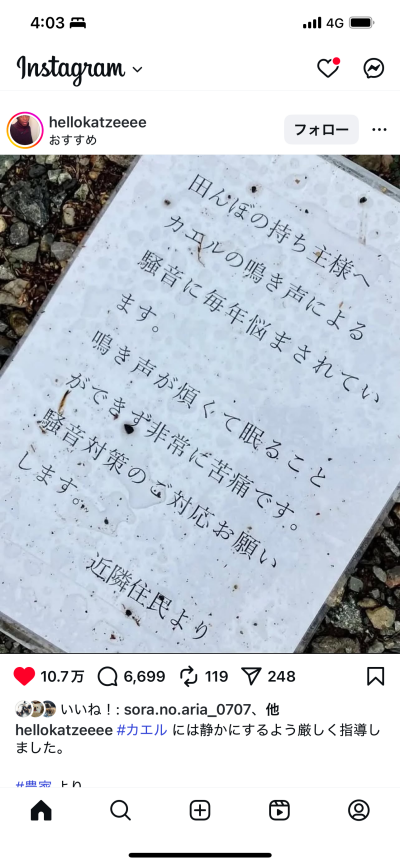 4:03
4G
Instagram
hellokatzeeee
おすすめ
フォロー
田んぼの持ち主様へ
カエルの鳴き声による
騒音に毎年悩まされてい
ます。
鳴き声が煩くて眠ること
ができず非常に苦痛です。
騒音対策のご対応お願い
します。
近隣住民より
10.7万
6,699
119
248
いいね！: sora.no.aria_0707、他
hellokatzeeee #カエル には静かにするよう厳しく指導し
ました。
#農家 より